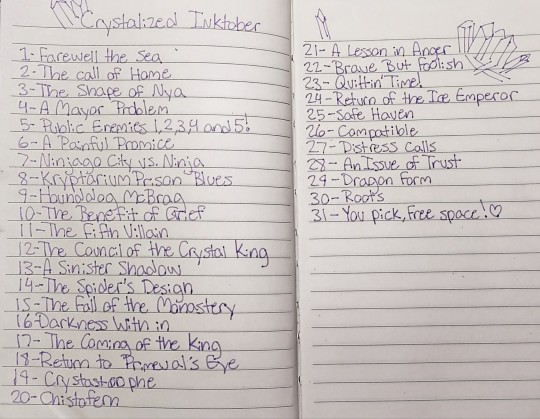 Crystalized Inktober
1- Farewell the Sea
2- The call of Home
3- The Shape of Nya
4- A Mayor Problem
5- Public Enemies 1,2,3,4 and 5!
6- A Painful Promice
7- Ninjago City vs. Ninja
8- Kryptarium Prison Blues
9- Hounddog McBrag
10- The Benefit of Grief
11- The Fifth Villain
12- The Council of the Crystal King
13- A Sinister Shadow
14- The Spider's Design
15- The Fall of the Monastery
16- Darkness With in
17- The Coming of the King
18- Return to Primeval's Eye
19- Crystastrophe
20- Christofern
21- A Lesson in Anger
22- Brave But foolish
23- Quittin' Time!
24- Return of the Ice Emperor
25- Safe Haven
26- Compatible
27- Distress Calls
28- An Issue of Trust
29- Dragon form
30- Roots
31- You pick, Free space!♡